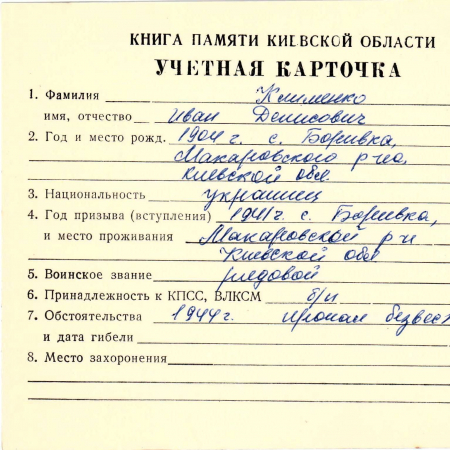 КНИГА ПАМЯТИ КИЕВСКОЙ ОБЛАСТИ
УЧЕТНАЯ КАРТОЧКА
1. Фамилия Клименко
имя, отчество Иван Денисович
2. Год и место рожд. 1904 г. с. Боривка,
Макаровского р-на,
Киевской обл.
3. Национальность украинец
4. Год призыва (вступления) 1941 г. с. Боривка,
и место проживания Макаровской р-н
Киевской обл
5. Воинское звание рядовой
6. Принадлежность к КПСС, ВЛКСМ б/п
7. Обстоятельства 1944 г. пропал безвес
и дата гибели
8. Место захоронения